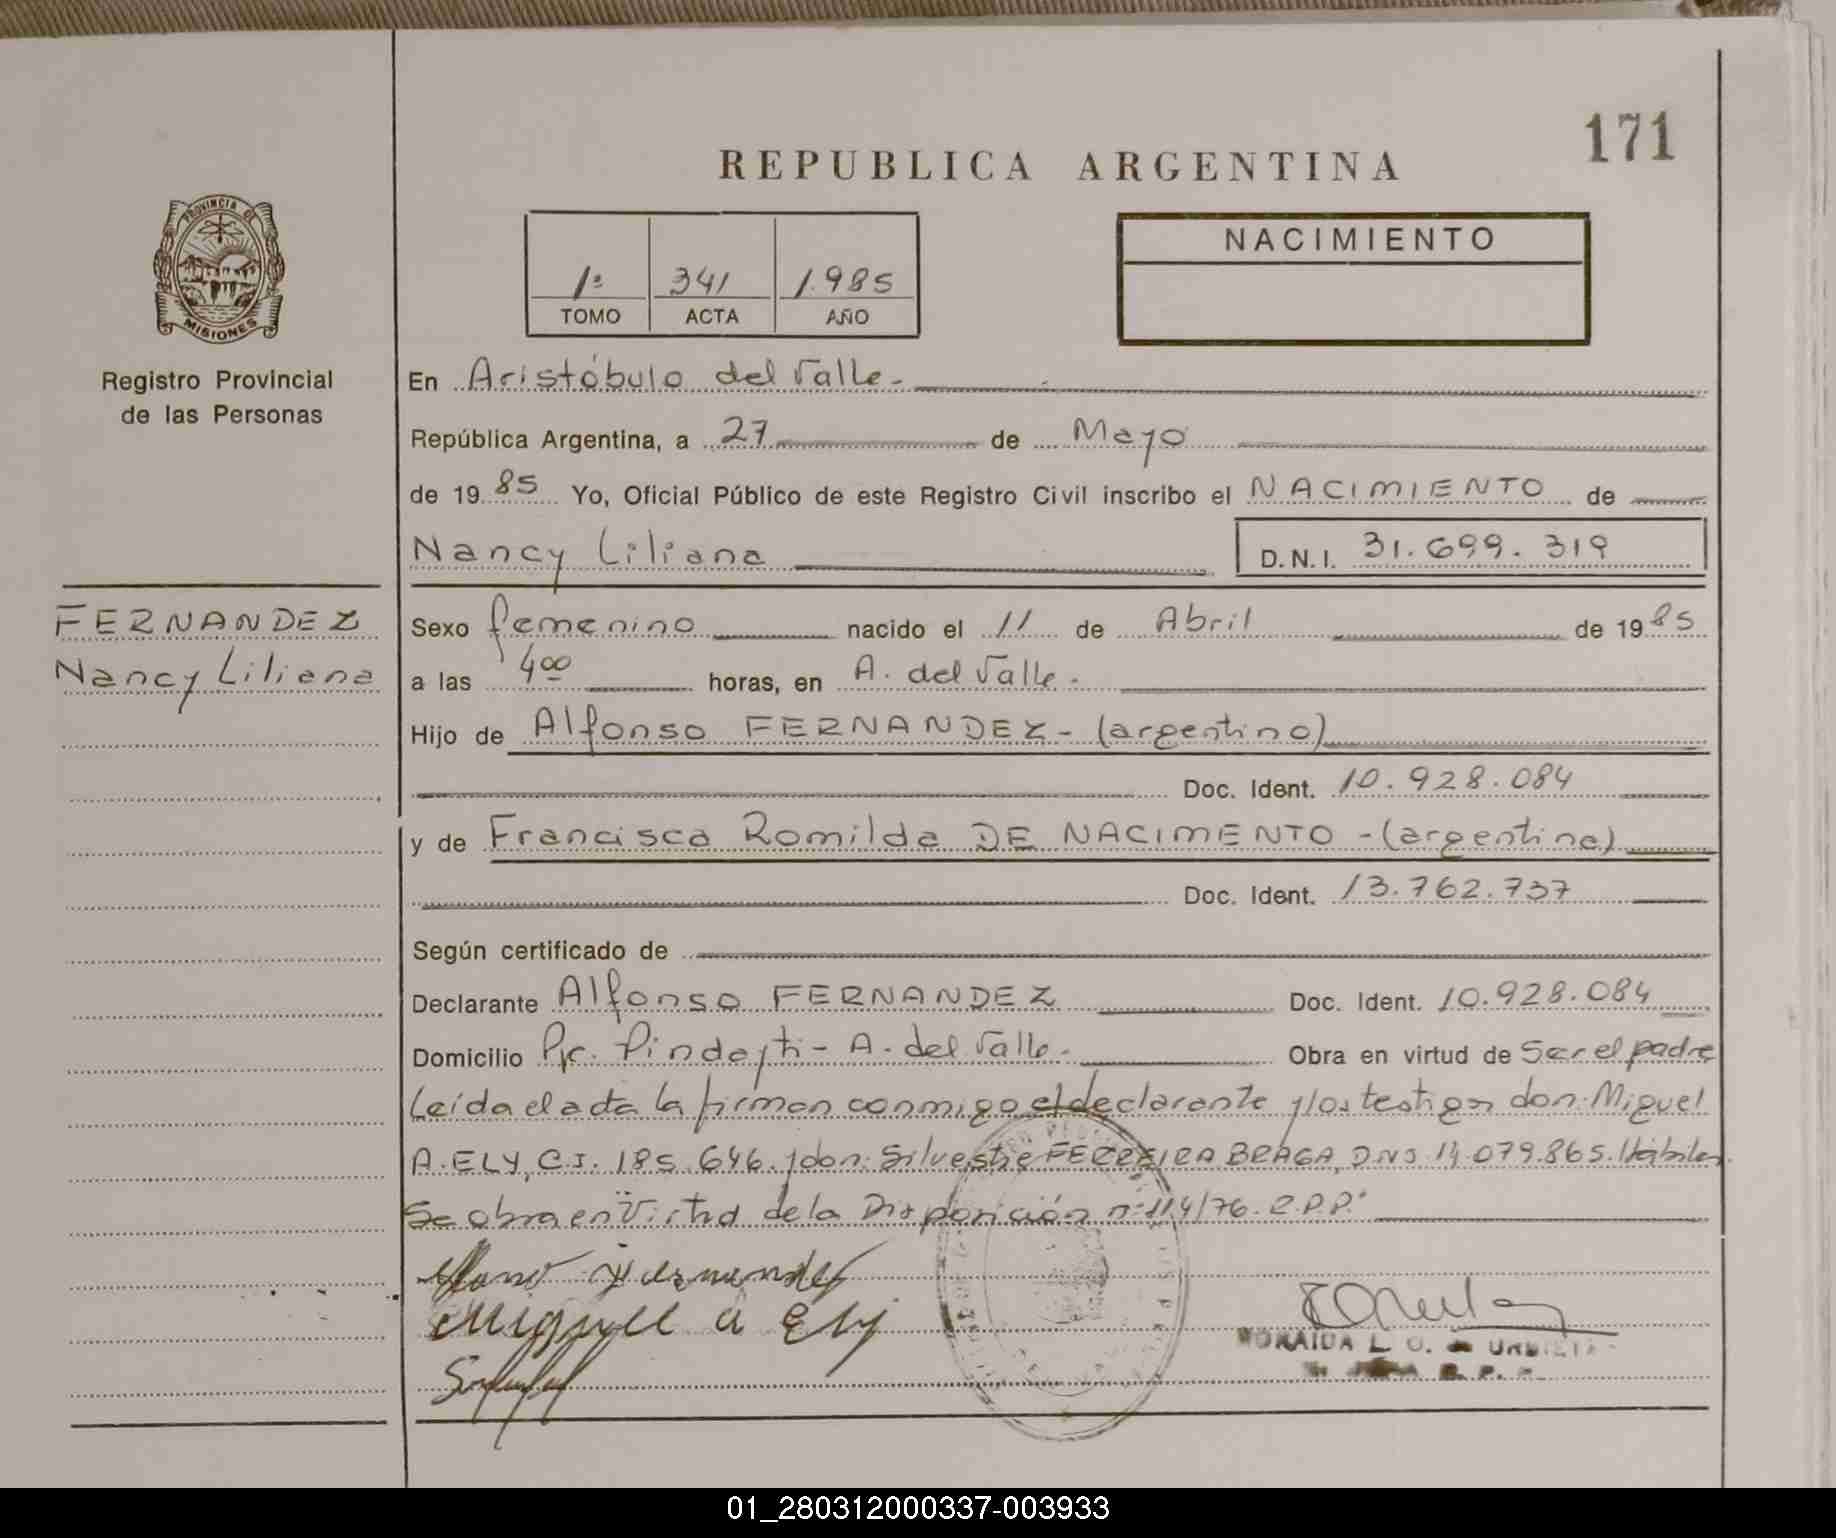 171
REPUBLICA ARGENTINA
PROVINCIA DE
MISIONES
Registro Provincial
de las Personas
1ª 341 1.985
TOMO ACTA AÑO
NACIMIENTO
En Aristóbulo del Valle.-
República Argentina, a 27 de Mayo
de 1985 Yo, Oficial Público de este Registro Civil inscribo el NACIMIENTO de
Nancy Liliana
D.N.I. 31.699.319
FERNANDEZ
Nancy Liliana
Sexo femenino nacido el 11 de Abril de 1985
a las 4oo horas, en A. del Valle.-
Hijo de Alfonso FERNANDEZ - (argentino)
Doc. Ident. 10.928.084
y de Francisca Romilda DE NACIMENTO - (argentina)
Doc. Ident. 13.762.737
Según certificado de
Declarante Alfonso FERNANDEZ Doc. Ident. 10.928.084
Domicilio Pje. Pindayti - A. del Valle.- Obra en virtud de Ser el padre
Leída el acta la firman conmigo el declarante y los testigos don: Miguel
A. ELY, C.I. 185.646 y don: Silvestre FERREIRA BRAGA, D.N.I. 14.079.865. Hábiles
Se obra en Virtud de la Disposición nº 114/76. R.P.P.
Fernandez
Miguel A Ely
L. O.
01_280312000337-003933